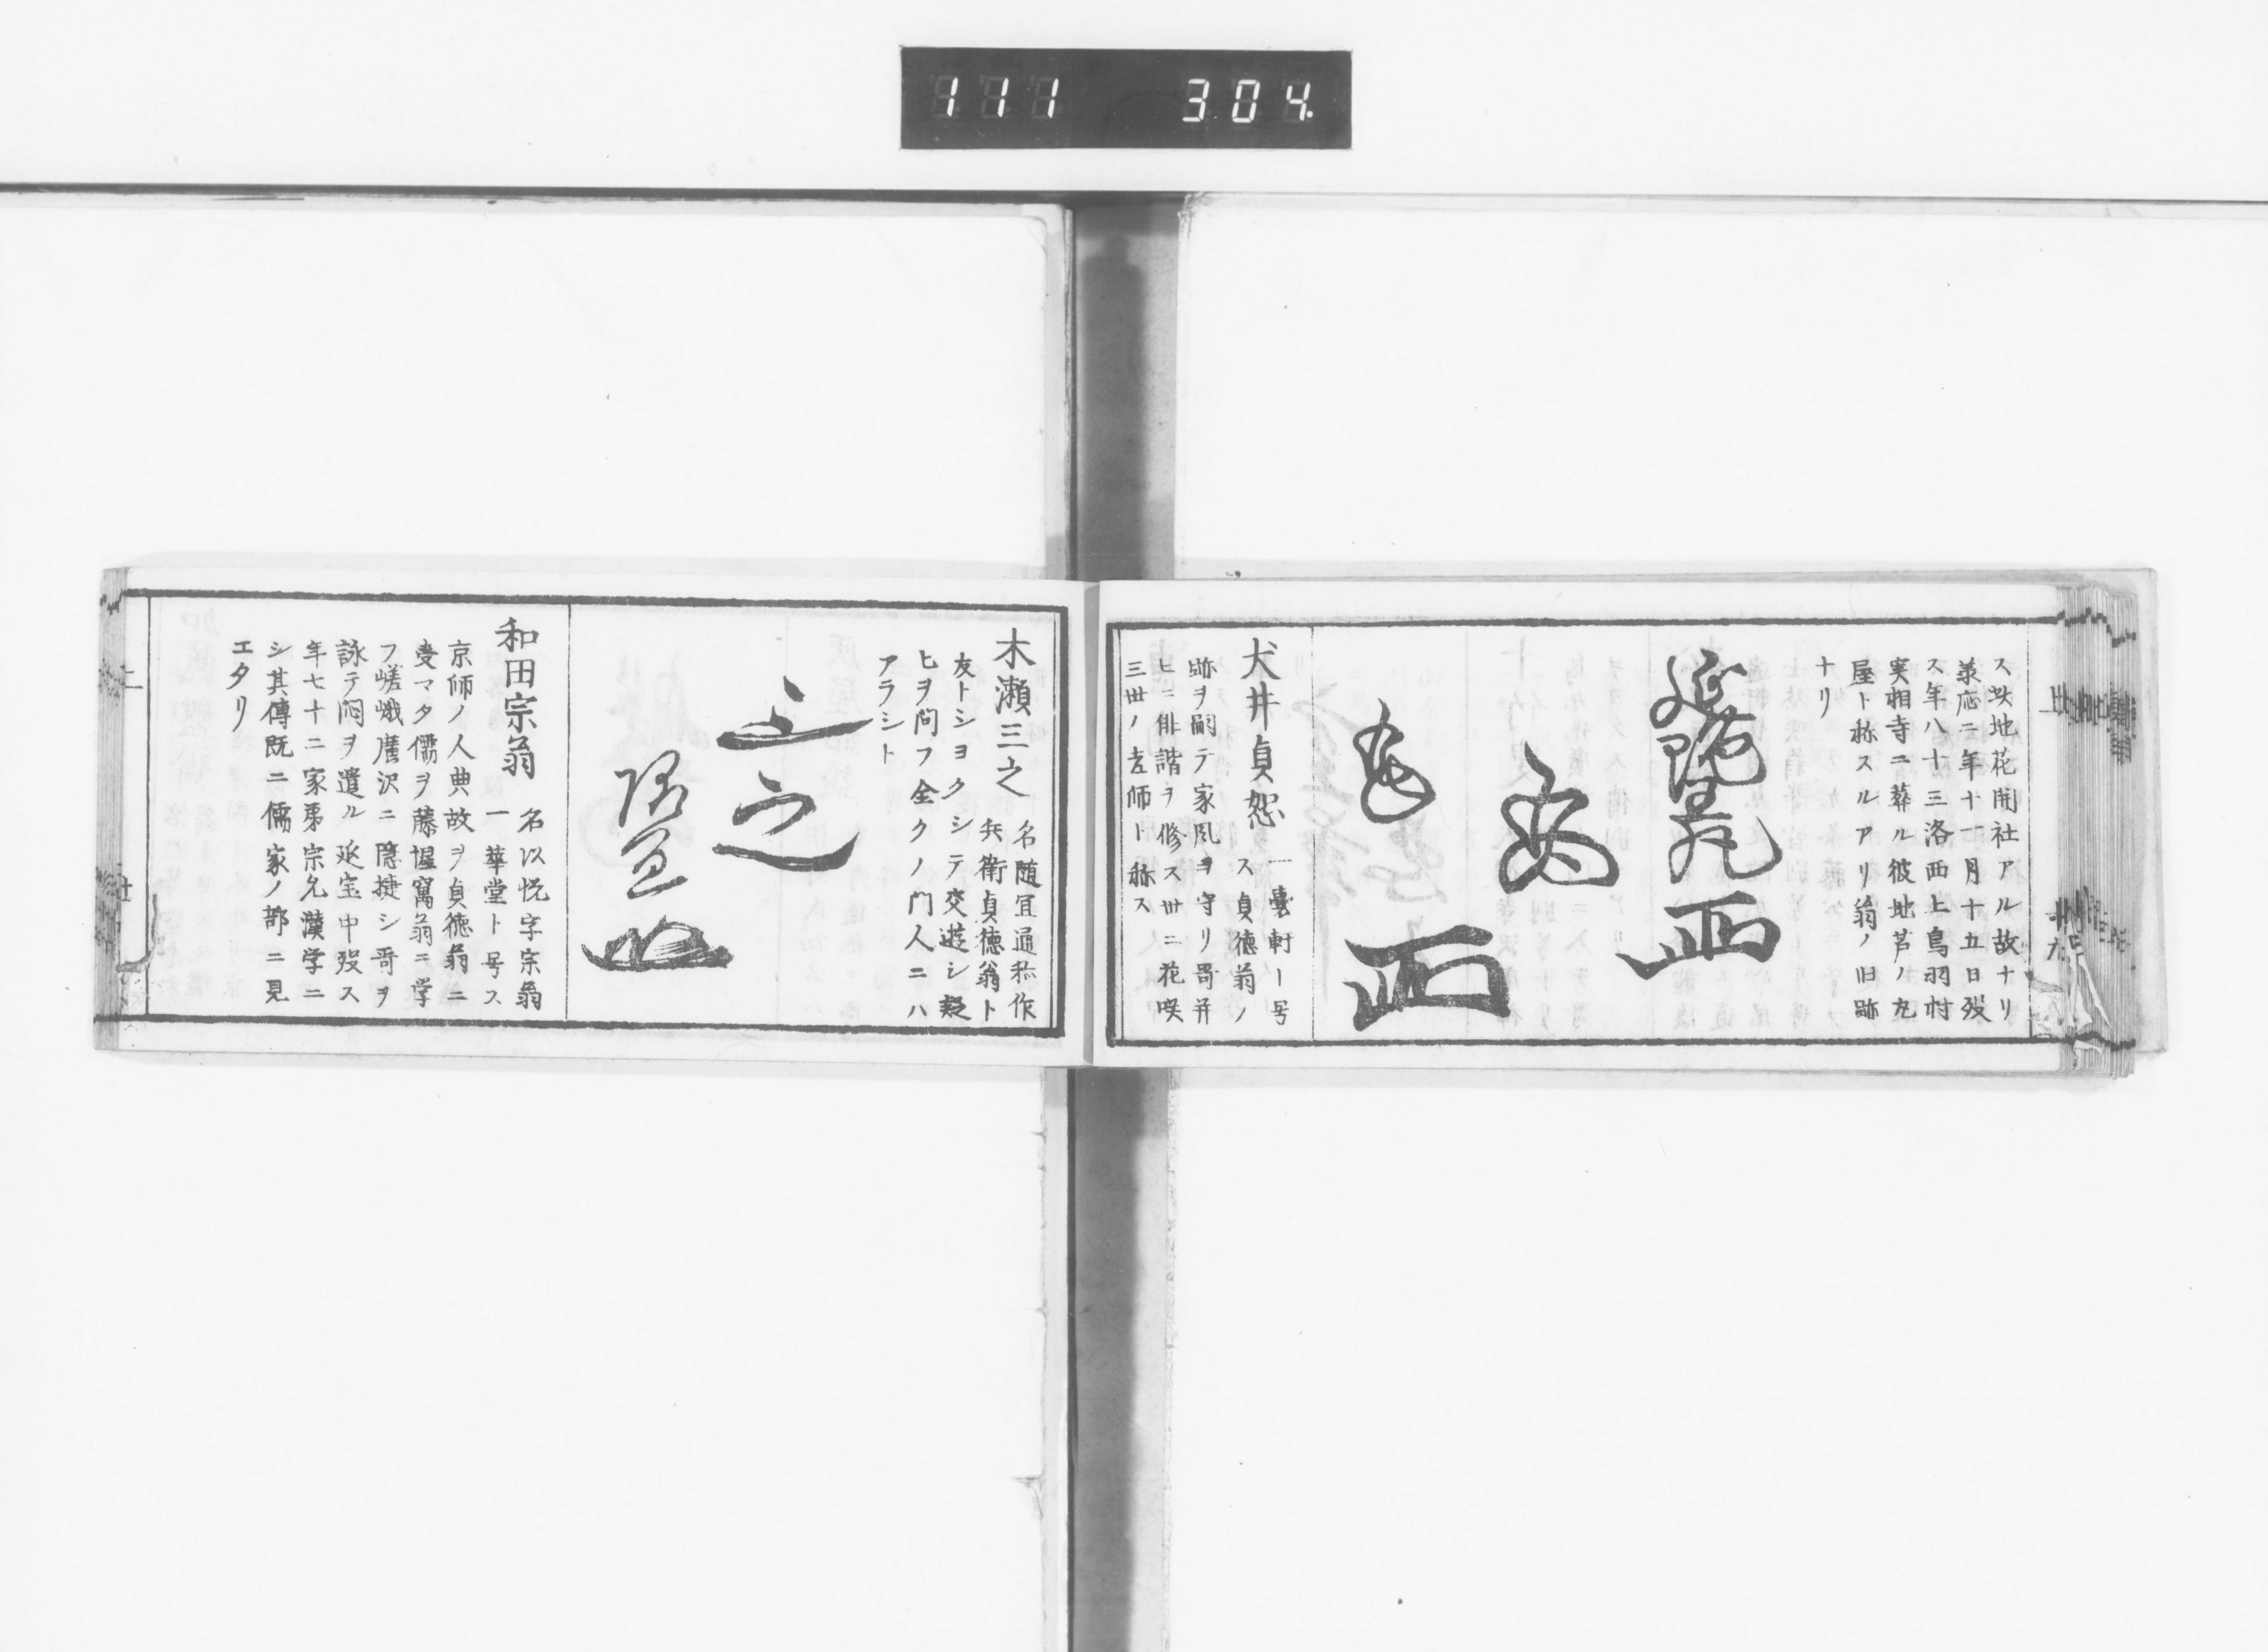 111 304.
ス此地花開社アル故ナリ
承応二年十一月十五日歿
ス年八十三洛西上鳥羽村
実相寺ニ葬ル彼地芦ノ丸
屋ト称スルアリ翁ノ旧跡
ナリ
延陀丸
犬井貞恕
一囊軒ト号
ス貞徳翁ノ
跡ヲ嗣テ家風ヲ守リ哥并
ヒニ俳諧ヲ修ス世ニ花咲
三世ノ宗師ト称ス
木瀬三之
名随宜通称作
兵衛貞徳翁ト
友トシヨクシテ交遊シ疑
ヒヲ問フ全クノ門人ニハ
アラシト
三之
随宜
和田宗翁
名以悦字宗翁
一華堂ト号ス
京師ノ人典故ヲ貞徳翁ニ
受マタ儒ヲ藤惺窩翁ニ学
フ嵯峨廣沢ニ隠捿シ哥ヲ
詠テ悶ヲ遣ル延宝中歿ス
年七十二家弟宗允漢学ニ
シ其傳既ニ儒家ノ部ニ見
エタリ